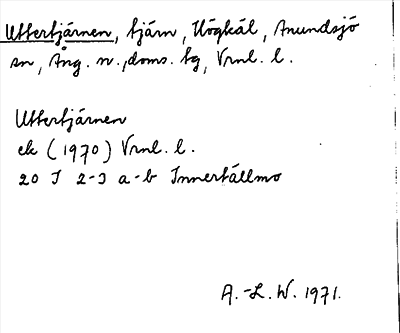 Uttertjärnen, tjärn, Högkål, Anundsjö
sn, Ång. n., doms. tg, Vrnl. l.
Uttertjärnen
ek (1970) Vrnl. l.
20 J 2-3 a-b Innertällmo
A.-L. W. 1971.